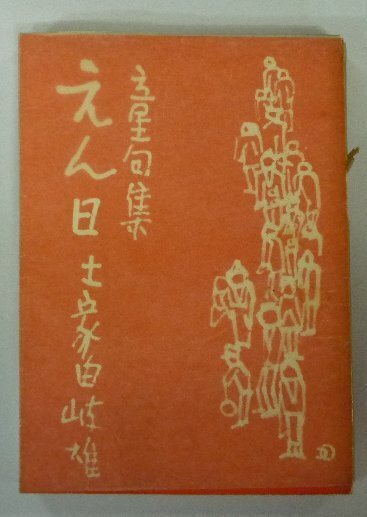 童句集
えん日 土家由岐雄